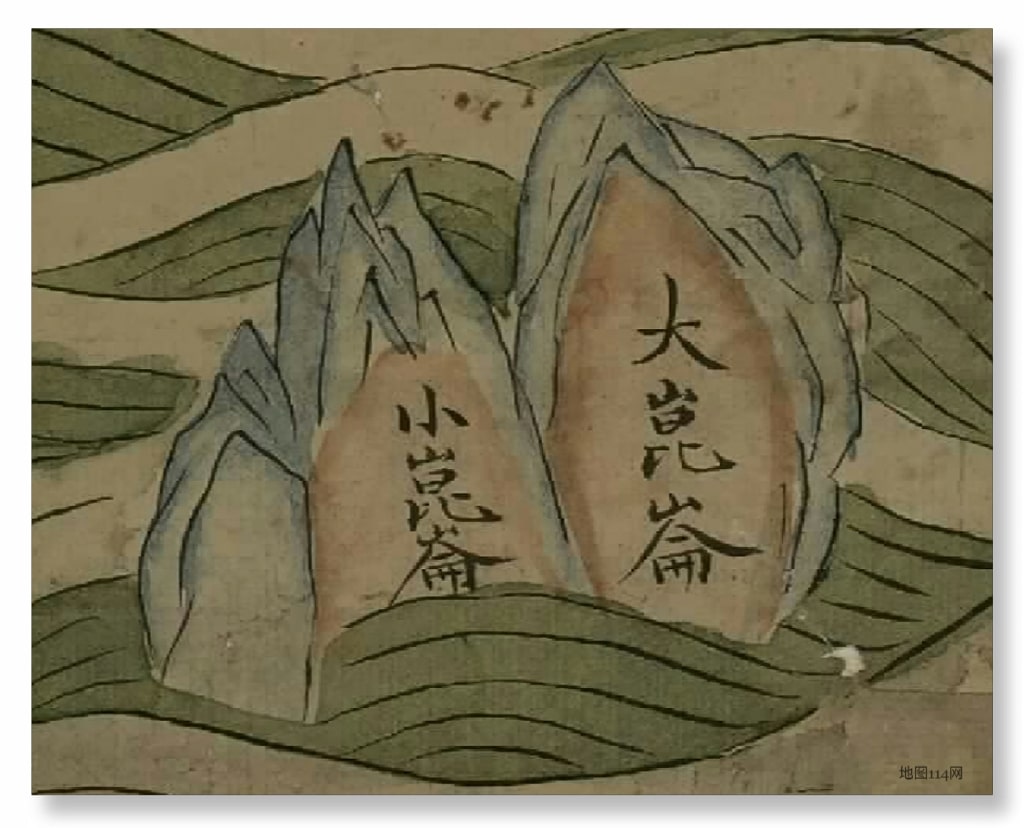 大崑崙
小崑崙
地图114网